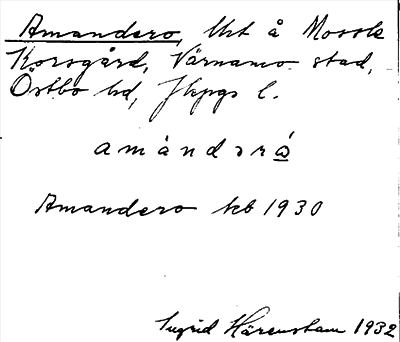 Amandero, lht å Mossle
Korsgård, Värnamo stad,
Östbo hd, Jkpgs l.
amàndərå
Amandero kb 1930
Ingrid Härenstam 1932